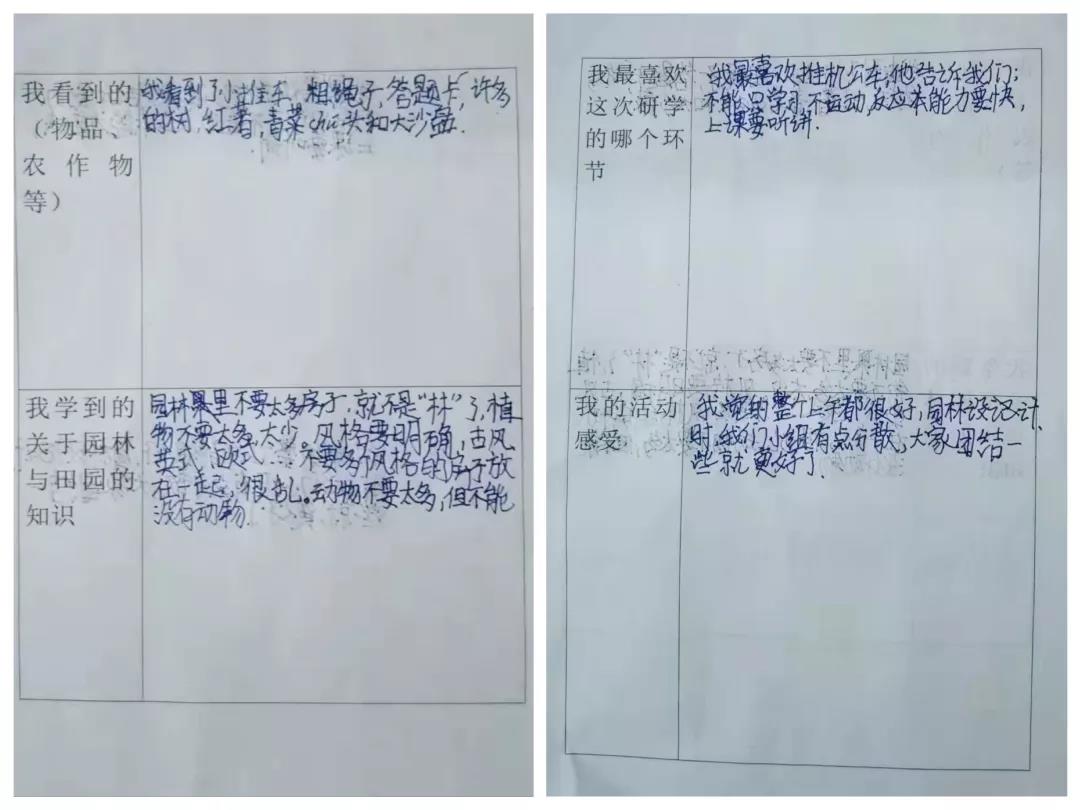 我看到的
（物品、
农作物
等）
我看到了小推车，粗绳子，答题卡，许多
的树，红薯，青菜chu头和大沙盘.
我学到的
关于园林
与田园的
知识
园林里不要太多房子，就不是“林”了，植
物不要太多，太少。风格要明确，古风
英式，欧式…不要多个风格的房子放
在一起，很乱。动物不要太多，但不能
没有动物.
我最喜欢
这次研学
的哪个环
节
我最喜欢推机公车，他告诉我们：
不能只学习不运动，反应本能力要快，
上课要听讲.
我的活动
感受
我觉的整个上午都很好，园林设计
时，我们小组有点分散，大家团结一
些就更好了.